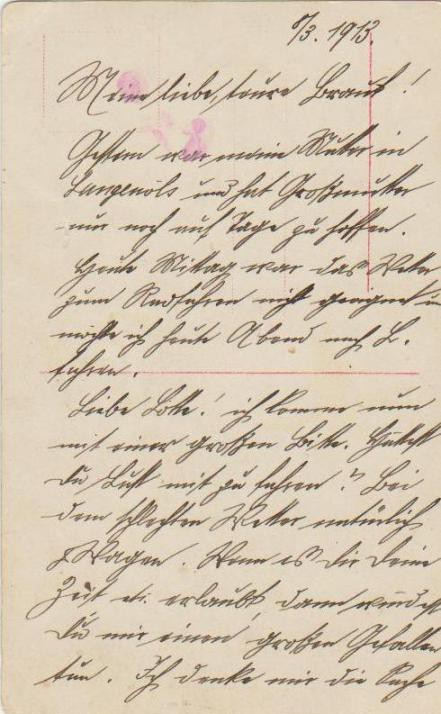 8/3. 1913.
Meine liebe, teure Braut!
Gestern war meine Mutter in
Langenöls und hat Großmutter
nur noch auf Tage zu hoffen.
Heute Mittag war das Wetter
zum Radfahren nicht geeignet u.
möchte ich heute Abend nach L.
fahren.
Liebe Lotte! ich komme nun
mit einer großen Bitte. Hättest
Du Lust mit zu fahren? Bei
dem schlechten Wetter natürlich
p Wagen. Wenn es Dir Deine
Zeit etc. erlaubt, dann würdest
Du mir einen großen Gefallen
tun. Ich denke mir die Sache